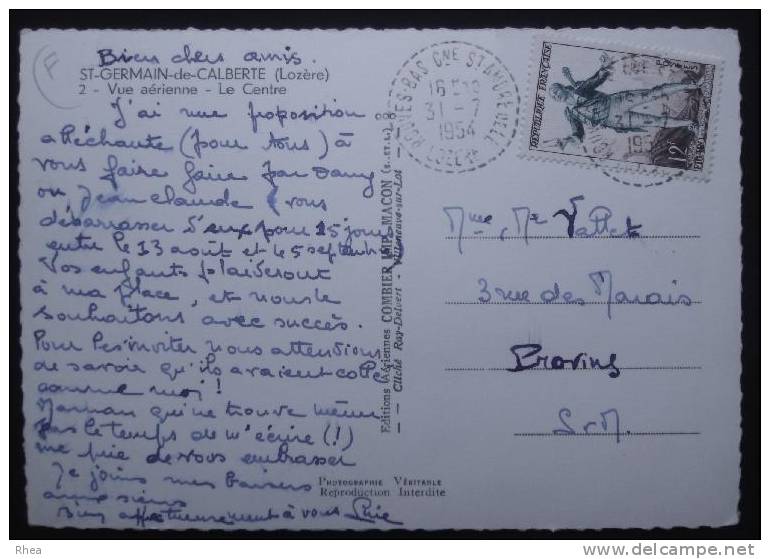 Bien chers amis.
ST-GERMAIN-de-CALBERTE (Lozère)
2 - Vue aérienne - Le Centre
J'ai une proposition
alléchante (pour tous) à
vous faire faire par Dany
ou Jean Claude (vous
débarrasser d'eux pour 15 jours
entre le 13 août et 15 septembre)
Vos enfants plaideront
à ma place, et nous le
souhaitons avec succès.
Pour les inviter nous attendions
de savoir qu'ils avaient collé
comme moi !
Maman qui ne trouve même
pas le temps de m'écrire (!)
me prie de vous embrasser
Je joins mes baisers
aux siens
Bien affectueusement à vous
Editions Aériennes COMBIER IMP. MACON (S.-et-L.)
Cliché Ray-Delvert - Villeneuve-sur-Lot
PHOTOGRAPHIE VÉRITABLE
Reproduction Interdite
16
31 - 7
1954
LOZERE
REPUBLIQUE FRANÇAISE
POSTES
12F
Mme, Mr Vallet
3 rue des Marais
Provins
S. et M.
Rhea
http://www.delcampe.net